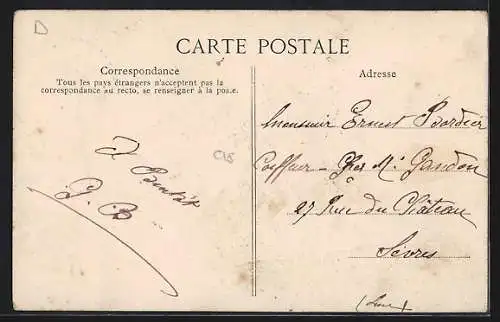 D
CARTE POSTALE
Correspondance
Tous les pays étrangers n'acceptent pas la
correspondance au recto, se renseigner à la poste.
Adresse
A
Bientôt
P. B
C15
Monsieur Ernest Bordier
Coiffeur - Chez Mr Gandon
27 Rue du Château
Sèvres